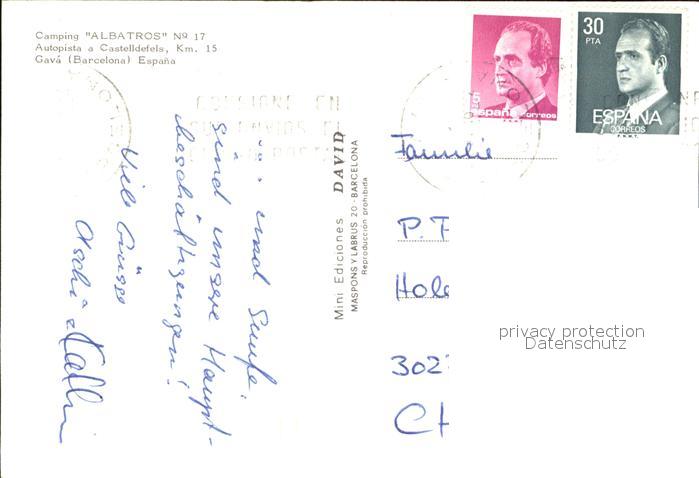 Camping "ALBATROS" Nº 17
Autopista a Castelldefels, Km. 15
Gavá (Barcelona) España
5
España correos
30
PTA
ESPAÑA
CORREOS
F.N.M.T.
CONSIGNE EN
SUS ENVIOS EL
... und
sind unsere Haupt-
beschäftigungen!
Viele Grüsse
Mini Ediciones DAVID
MASPONS Y LABRUS 20 - BARCELONA
Reproducción prohibida
Familie
P. F
Hol
302
CH
privacy protection
Datenschutz